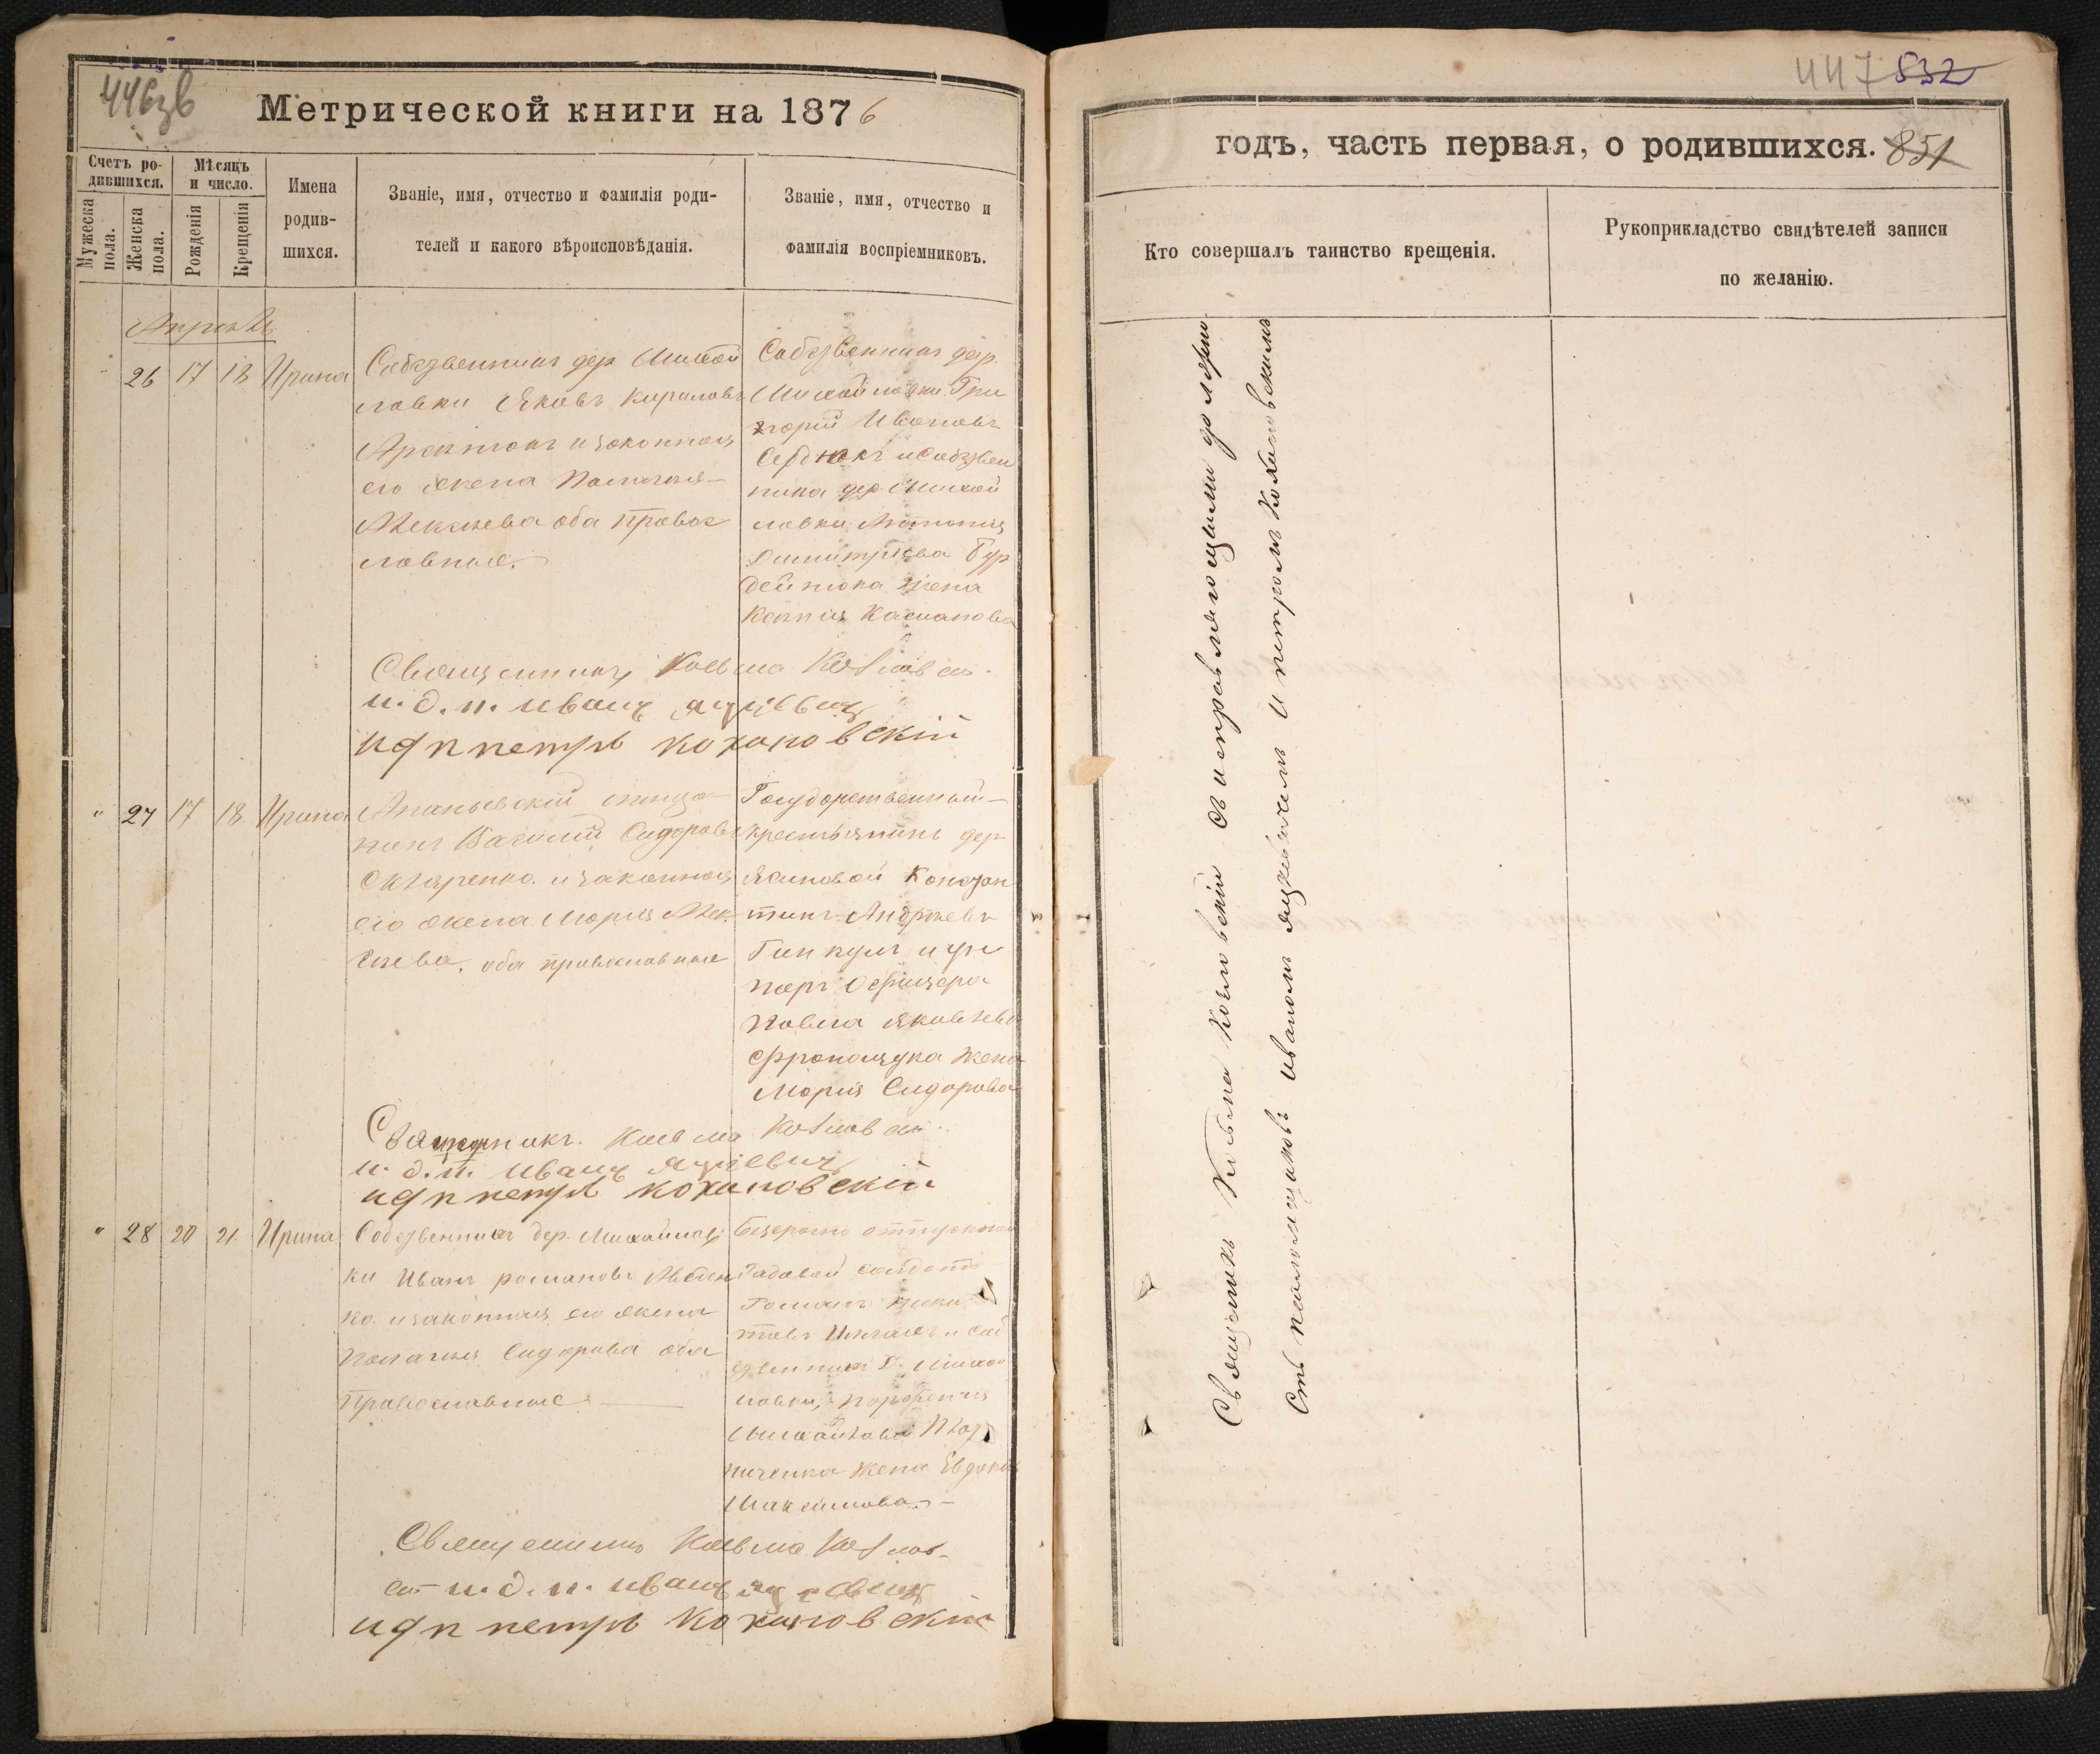 446зв
Метрической книги на 1876
Счетъ ро-
дившихся.
Мѣсяцъ
и число.
Мужеска
пола.
Женска
пола.
Рожденія
Крещенія
Имена
родив-
шихся.
Званіе, имя, отчество и фамилія роди-
телей и какого вѣроисповѣданія.
Званіе, имя, отчество и
фамилія воспріемниковъ.
Апрель
" 26 17 18 Ирина
Собственникъ дер Михай
ловки Яковъ Кириловъ
и законная
его жена Пелагея
Алексѣева оба правос
лавные.
Собственникъ дер.
Михайловки Гри
горій Ивановъ
Сердюкъ и Собствен
ника дер Михай
ловки Антонія
Димитріева Бур
дейнюка жена
Ксенія Касианова
Священникъ Косьма
и. д. п. Иванъ Яцкевичъ
идп петръ кохановскій
" 27 17 18 Ирина
Ананьевскій мѣща
нинъ Василій Сидоровъ
Скляренко и законная
его жена Марія Алек
сѣева, оба православные
Государственный
крестьянинъ дер
Ясиновой Констан
тинъ Андреевъ
Гинкулъ и ун
теръ Офицера
Павла Яковлева
жена
Марія Сидорова
Священникъ. Косьма
и. д. п. Иванъ Яцкевичъ
идп петръ кохановскій
" 28 20 21 Ирина
Собственникъ дер. Михайлов
ки Иванъ романовъ Авдѣен
ко. и законная его жена
Пелагея Сидорова оба
православные
Безсрочно отпускной
Рядовой солдатъ
Романъ Ники
товъ и соб
ственника д. Михай
ловки,
Михайлова
жена Евдокія
Максимова.
Священникъ Косьма
и. д. п. Иванъ Яцкевичъ
идп петръ Кохановскій
447 832
годъ, часть первая, о родившихся. 851
Кто совершалъ таинство крещенія.
Рукоприкладство свидѣтелей записи
по желанію.
Священникъ Косьма съ исправляющими должно
сть псаломщиковъ Иваномъ Яцкевичемъ и петромъ Кохановскимъ